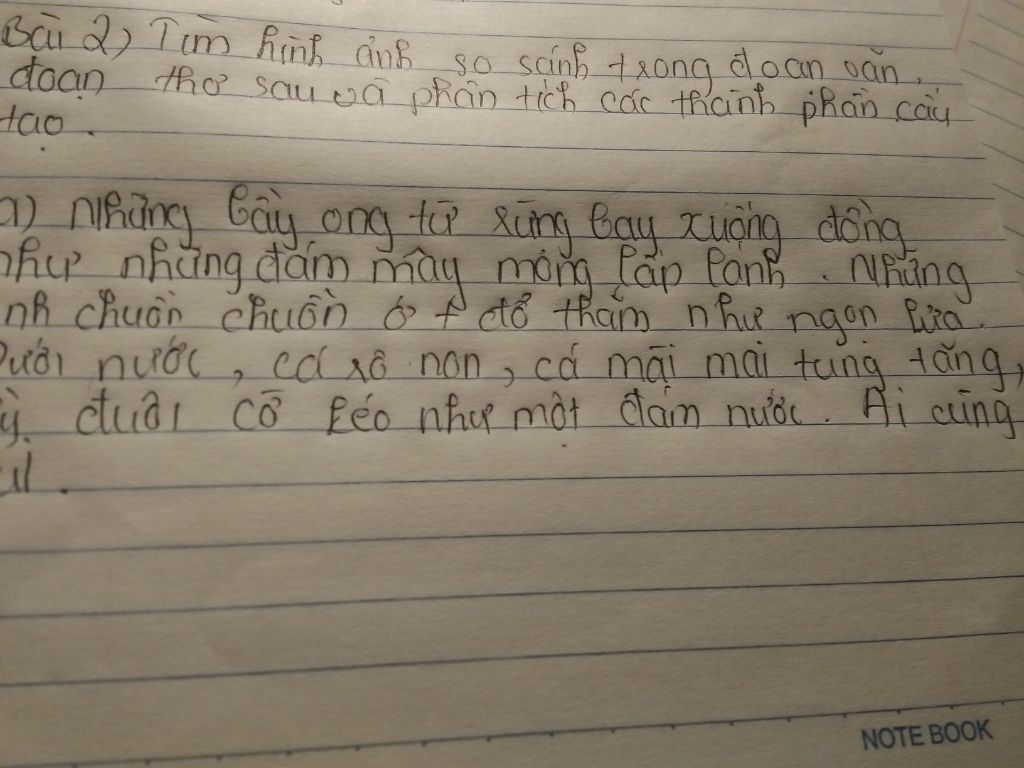 Bài 2) Tìm hình ảnh so sánh trong đoạn văn,
đoạn thơ sau và phân tích các thành phần cấu
tạo.
a) Những bầy ong từ rừng bay xuống đồng
như những đám mây mỏng lấp lánh. Những
nh chuồn chuồn ớt đỏ thắm như ngọn lửa.
Dưới nước, cá rô non, cá mại mại tung tăng,
đuôi cỏ kéo như một đám nước. Ai cũng
NOTE BOOK